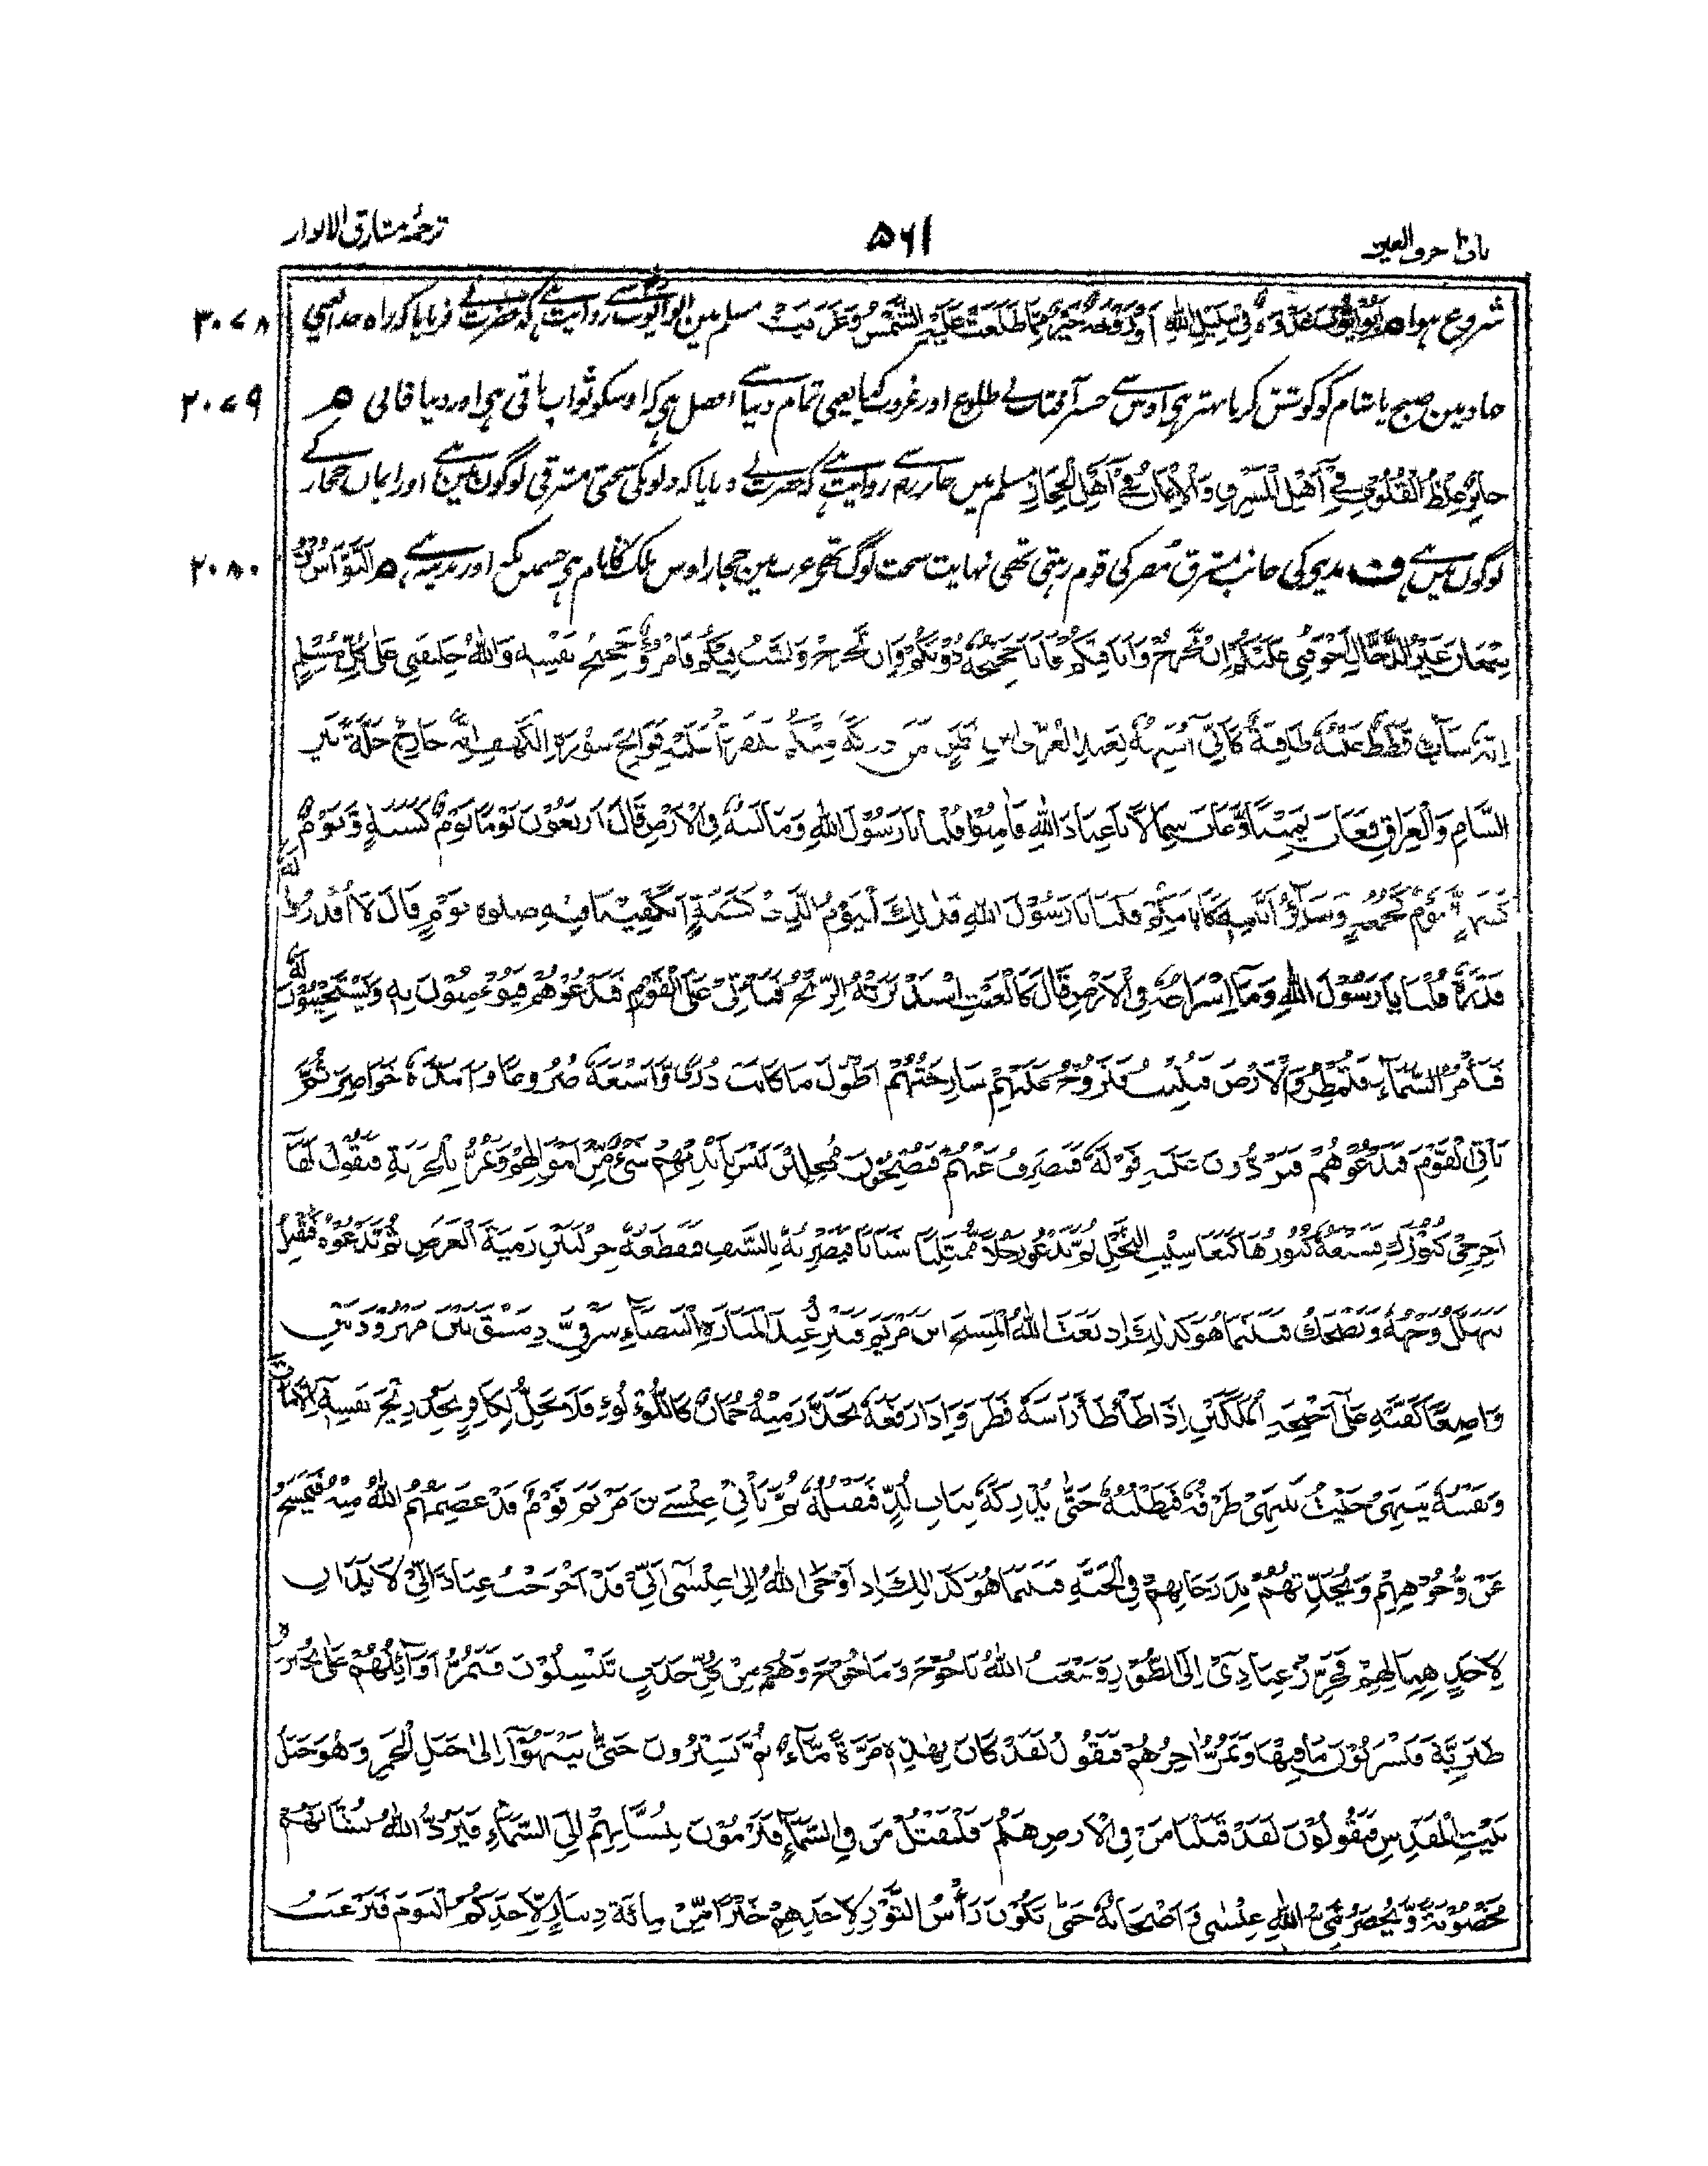 باب۱ حرف العین
۵۶۱
ترجمۂ مشارق الانوار
شروع ہوا ھ اَبُوْاَیُّوْبَ غَدْوَةٌ فِیْ سَبِیْلِ اللّٰهِ اَوْرَوْحَةٌ خَیْرٌ مِّمَّا طَلَعَتْ عَلَیْهِ الشَّمْسُ وَغَرَبَتْ مسلم مین ابوایوب سے روایت ہے کہ حضرت نے فرمایا کہ راہ خدا یعنی ۲۰۷۸
جہاد مین صبح یا شام کو کوشش کرنا بہتر ہی اوس سے جسپر آفتاب نے طلوع اور غروب کیا یعنی تمام دنیا سے افضل ہی کہ اوسکو ثواب باقی ہی اور دنیا فانی ھ ۲۰۷۹
جَابِرٌ غِلَظُ الْقُلُوْبِ فِیْ اَهْلِ الْمَشْرِقِ وَالْاِیْمَانُ فِیْ اَهْلِ الْحِجَازِ مسلم میں جابر سے روایت ہے کہ حضرت نے فرمایا کہ دلونکی سختی مشرقی لوگون مین ہے اور ایمان حجاز کے
لوگوں میں ہے ف مدینے کی جانب مشرق مضر کی قوم رہتی تھی نہایت سخت لوگ تھے عرب مین حجاز اوس ملک کا نام ہی جسمیں مکہ اور مدینہ ہے ھ اَلنَّوَّاسُ بْنُ ۲۰۸۰
سِمْعَانَ غَیْرُ الدَّجَّالِ اَخْوَفُنِیْ عَلَیْكُمْ اِنْ یَّخْرُجْ وَاَنَا فِیْكُمْ فَاَنَا حَجِیْجُهٗ دُوْنَكُمْ وَاِنْ یَّخْرُجْ وَلَسْتُ فِیْكُمْ فَامْرُؤٌ حَجِیْجُ نَفْسِهٖ وَاللّٰهُ خَلِیْفَتِیْ عَلٰی كُلِّ مُسْلِمٍ
اِنَّهٗ شَابٌّ قَطَطٌ عَیْنُهٗ طَافِیَةٌ كَاَنِّیْ اُشَبِّهُهٗ بِعَبْدِ الْعُزّٰی بْنِ قَطَنٍ فَمَنْ اَدْرَكَهٗ مِنْكُمْ فَلْیَقْرَاْ عَلَیْهِ فَوَاتِحَ سُوْرَةِ الْكَهْفِ اِنَّهٗ خَارِجٌ خَلَّةً بَیْنَ
الشَّامِ وَالْعِرَاقِ فَعَاثَ یَمِیْنًا وَّعَاثَ شِمَالًا یَا عِبَادَ اللّٰهِ فَاثْبُتُوْا قُلْنَا یَا رَسُوْلَ اللّٰهِ وَمَا لَبْثُهٗ فِی الْاَرْضِ قَالَ اَرْبَعُوْنَ یَوْمًا یَوْمٌ كَسَنَةٍ وَّیَوْمٌ
كَشَهْرٍ وَّیَوْمٌ كَجُمُعَةٍ وَسَائِرُ اَیَّامِهٖ كَاَیَّامِكُمْ قُلْنَا یَا رَسُوْلَ اللّٰهِ فَذٰلِكَ الْیَوْمُ الَّذِیْ كَسَنَةٍ اَتَكْفِیْنَا فِیْهِ صَلٰوةُ یَوْمٍ قَالَ لَا اُقْدُرُوْا لَهٗ
قَدْرَهٗ قُلْنَا یَا رَسُوْلَ اللّٰهِ وَمَا اِسْرَاعُهٗ فِی الْاَرْضِ قَالَ كَالْغَیْثِ اسْتَدْبَرَتْهُ الرِّیْحُ فَیَاْتِیْ عَلَی الْقَوْمِ فَیَدْعُوْهُمْ فَیُؤْمِنُوْنَ بِهٖ وَیَسْتَجِیْبُوْنَ لَهٗ
فَیَاْمُرُ السَّمَآءَ فَتُمْطِرُ وَالْاَرْضَ فَتُنْبِتُ فَتَرُوْحُ عَلَیْهِمْ سَارِحَتُهُمْ اَطْوَلَ مَا كَانَتْ ذُرًی وَّاَسْبَغَهٗ ضُرُوْعًا وَّاَمَدَّهٗ خَوَاصِرَ ثُمَّ
یَاْتِی الْقَوْمَ فَیَدْعُوْهُمْ فَیَرُدُّوْنَ عَلَیْهِ قَوْلَهٗ فَیَنْصَرِفُ عَنْهُمْ فَیُصْبِحُوْنَ مُمْحِلِیْنَ لَیْسَ بِاَیْدِیْهِمْ شَیْءٌ مِّنْ اَمْوَالِهِمْ وَیَمُرُّ بِالْخَرِبَةِ فَیَقُوْلُ لَهَا
اَخْرِجِیْ كُنُوْزَكِ فَتَتْبَعُهٗ كُنُوْزُهَا كَیَعَاسِیْبِ النَّحْلِ ثُمَّ یَدْعُوْ رَجُلًا مُّمْتَلِئًا شَبَابًا فَیَضْرِبُهٗ بِالسَّیْفِ فَیَقْطَعُهٗ جِزْلَتَیْنِ رَمْیَةَ الْغَرَضِ ثُمَّ یَدْعُوْهُ فَیُقْبِلُ
یَتَهَلَّلُ وَجْهُهٗ وَیَضْحَكُ فَبَیْنَمَا هُوَ كَذٰلِكَ اِذْ بَعَثَ اللّٰهُ الْمَسِیْحَ ابْنَ مَرْیَمَ فَیَنْزِلُ عِنْدَ الْمَنَارَةِ الْبَیْضَاءِ شَرْقِیَّ دِمَشْقَ بَیْنَ مَهْرُوْدَتَیْنِ
وَاضِعًا كَفَّیْهِ عَلٰی اَجْنِحَةِ الْمَلَكَیْنِ اِذَا طَاْطَاَ رَاْسَهٗ قَطَرَ وَاِذَا رَفَعَهٗ تَحَدَّرَ مِنْهُ جُمَانٌ كَاللُّؤْلُؤِ فَلَا یَحِلُّ لِكَافِرٍ یَجِدُ رِیْحَ نَفَسِهٖ اِلَّا مَاتَ
وَنَفَسُهٗ یَنْتَهِیْ حَیْثُ یَنْتَهِیْ طَرْفُهٗ فَیَطْلُبُهٗ حَتّٰی یُدْرِكَهٗ بِبَابِ لُدٍّ فَیَقْتُلُهٗ ثُمَّ یَاْتِیْ عِیْسَی بْنَ مَرْیَمَ قَوْمٌ قَدْ عَصَمَهُمُ اللّٰهُ مِنْهُ فَیَمْسَحُ
عَنْ وُّجُوْهِهِمْ وَیُحَدِّثُهُمْ بِدَرَجَاتِهِمْ فِی الْجَنَّةِ فَبَیْنَمَا هُوَ كَذٰلِكَ اِذْ اَوْحَی اللّٰهُ اِلٰی عِیْسٰی اَنِّیْ قَدْ اَخْرَجْتُ عِبَادًا لِّیْ لَا یَدَانِ
لِاَحَدٍ بِقِتَالِهِمْ فَحَرِّزْ عِبَادِیْ اِلَی الطُّوْرِ وَیَبْعَثُ اللّٰهُ یَاْجُوْجَ وَمَاْجُوْجَ وَهُمْ مِنْ كُلِّ حَدَبٍ یَّنْسِلُوْنَ فَیَمُرُّ اَوَآئِلُهُمْ عَلٰی بُحَیْرَةِ
طَبَرِیَّةَ فَیَشْرَبُوْنَ مَا فِیْهَا وَیَمُرُّ اٰخِرُهُمْ فَیَقُوْلُ لَقَدْ كَانَ بِهٰذِهٖ مَرَّةً مَّآءٌ ثُمَّ یَسِیْرُوْنَ حَتّٰی یَنْتَهُوْا اِلٰی جَبَلِ الْخَمَرِ وَهُوَ جَبَلُ
بَیْتِ الْمَقْدِسِ فَیَقُوْلُوْنَ لَقَدْ قَتَلْنَا مَنْ فِی الْاَرْضِ هَلُمَّ فَلْنَقْتُلْ مَنْ فِی السَّمَآءِ فَیَرْمُوْنَ بِنُشَّابِهِمْ اِلَی السَّمَآءِ فَیَرُدُّ اللّٰهُ نُشَّابَهُمْ
مَخْضُوْبَةً وَّیُحْصَرُ نَبِیُّ اللّٰهِ عِیْسٰی وَاَصْحَابُهٗ حَتّٰی یَكُوْنَ رَاْسُ الثَّوْرِ لِاَحَدِهِمْ خَیْرًا مِّنْ مِائَةِ دِیْنَارٍ لِّاَحَدِكُمُ الْیَوْمَ فَیَرْغَبُ